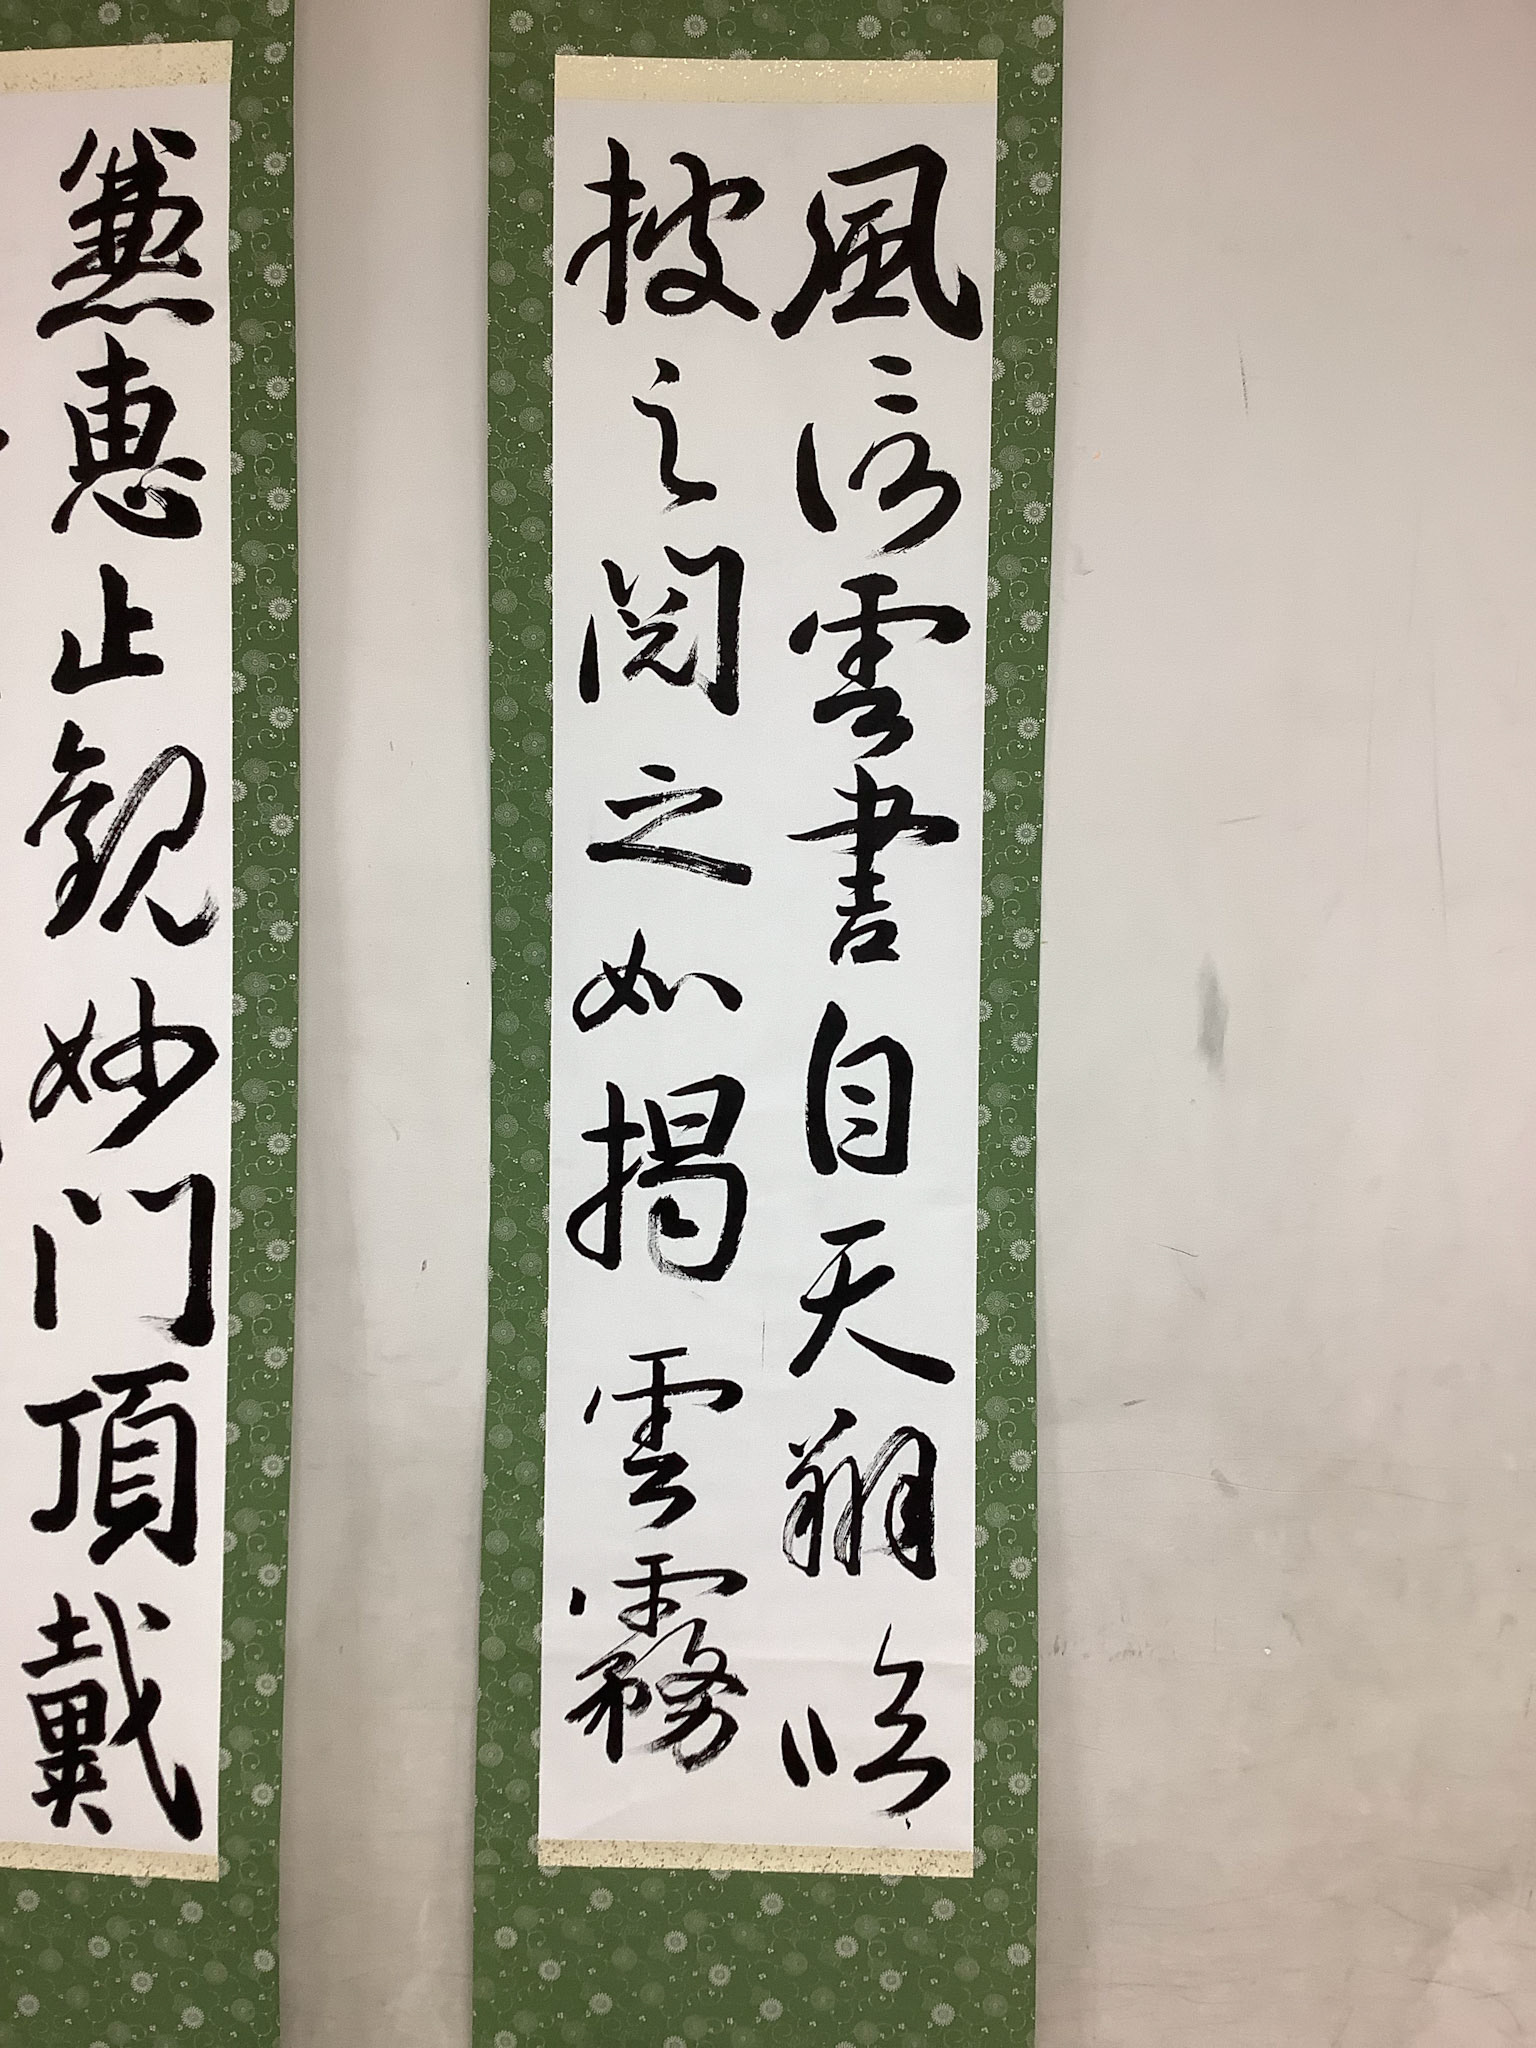 風信雲書自天翔臨
披之閲之如掲雲霧
兼恵止観妙門頂戴